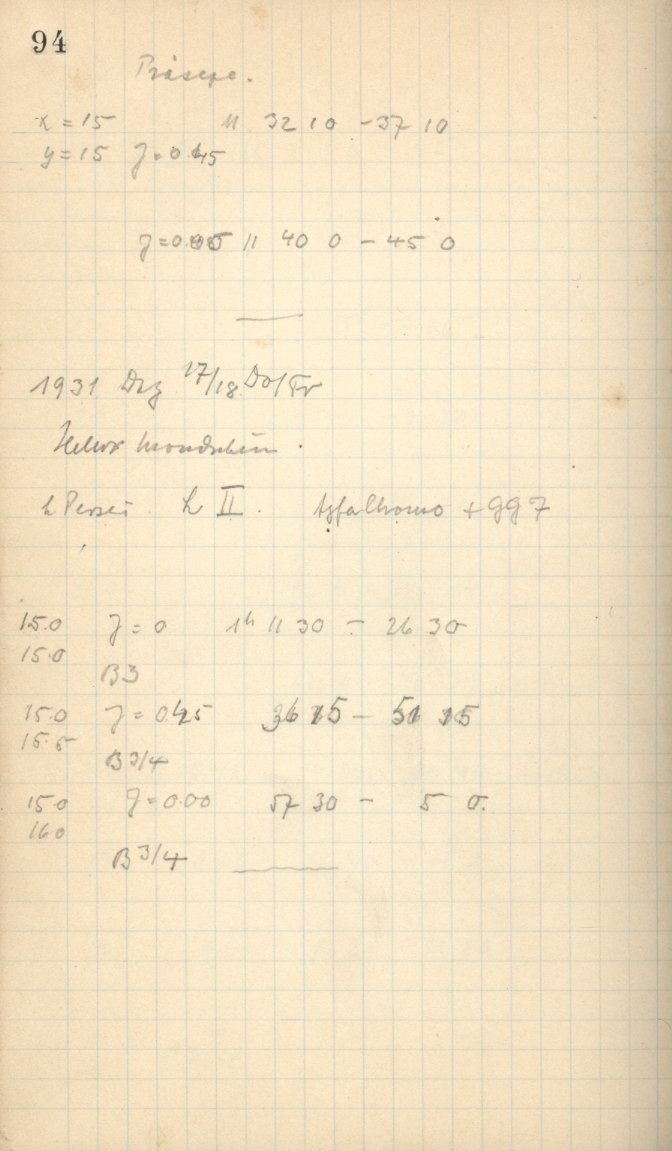 94
Präsepe.
x = 15 11 32 10 - 37 10
y = 15 J = 0.45
J = 0.00 11 40 0 - 45 0
1931 Dez 17/18 Do/Fr
Heller Mondschein.
h Persei h II. + 997
15.0 J = 0 1h 11 30 - 26 30
15.0
B3
15.0 J = 0.45 36 15 - 51 15
15.5
B 3/4
15.0 J = 0.00 57 30 - 5 0.
16.0
B 3/4